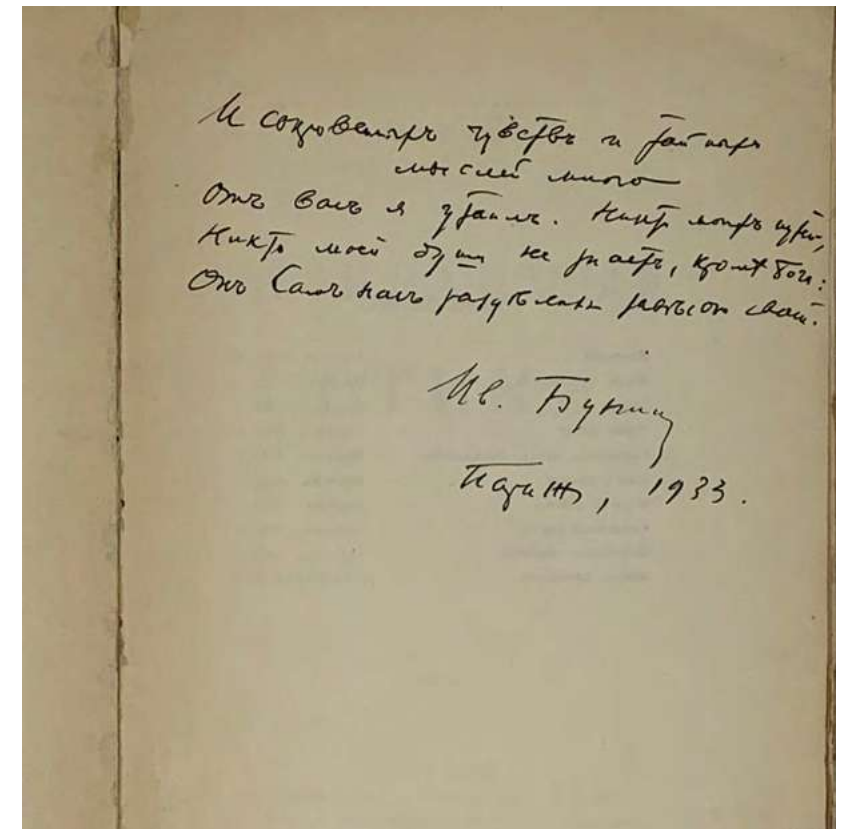 И сокровенныхъ чувствъ и тайныхъ
мыслей много
Отъ васъ я утаилъ. Никто моихъ путей,
Никто моей души не знаетъ, кромѣ Бога:
Онъ Самъ насъ раздѣлилъ завѣсою своей.
Ив. Бунин
Париж, 1933.